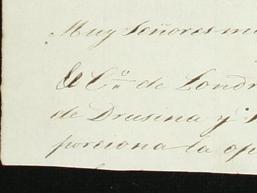 Muy Señores mi
El Co de Londr
de Drusina y
porciona la op